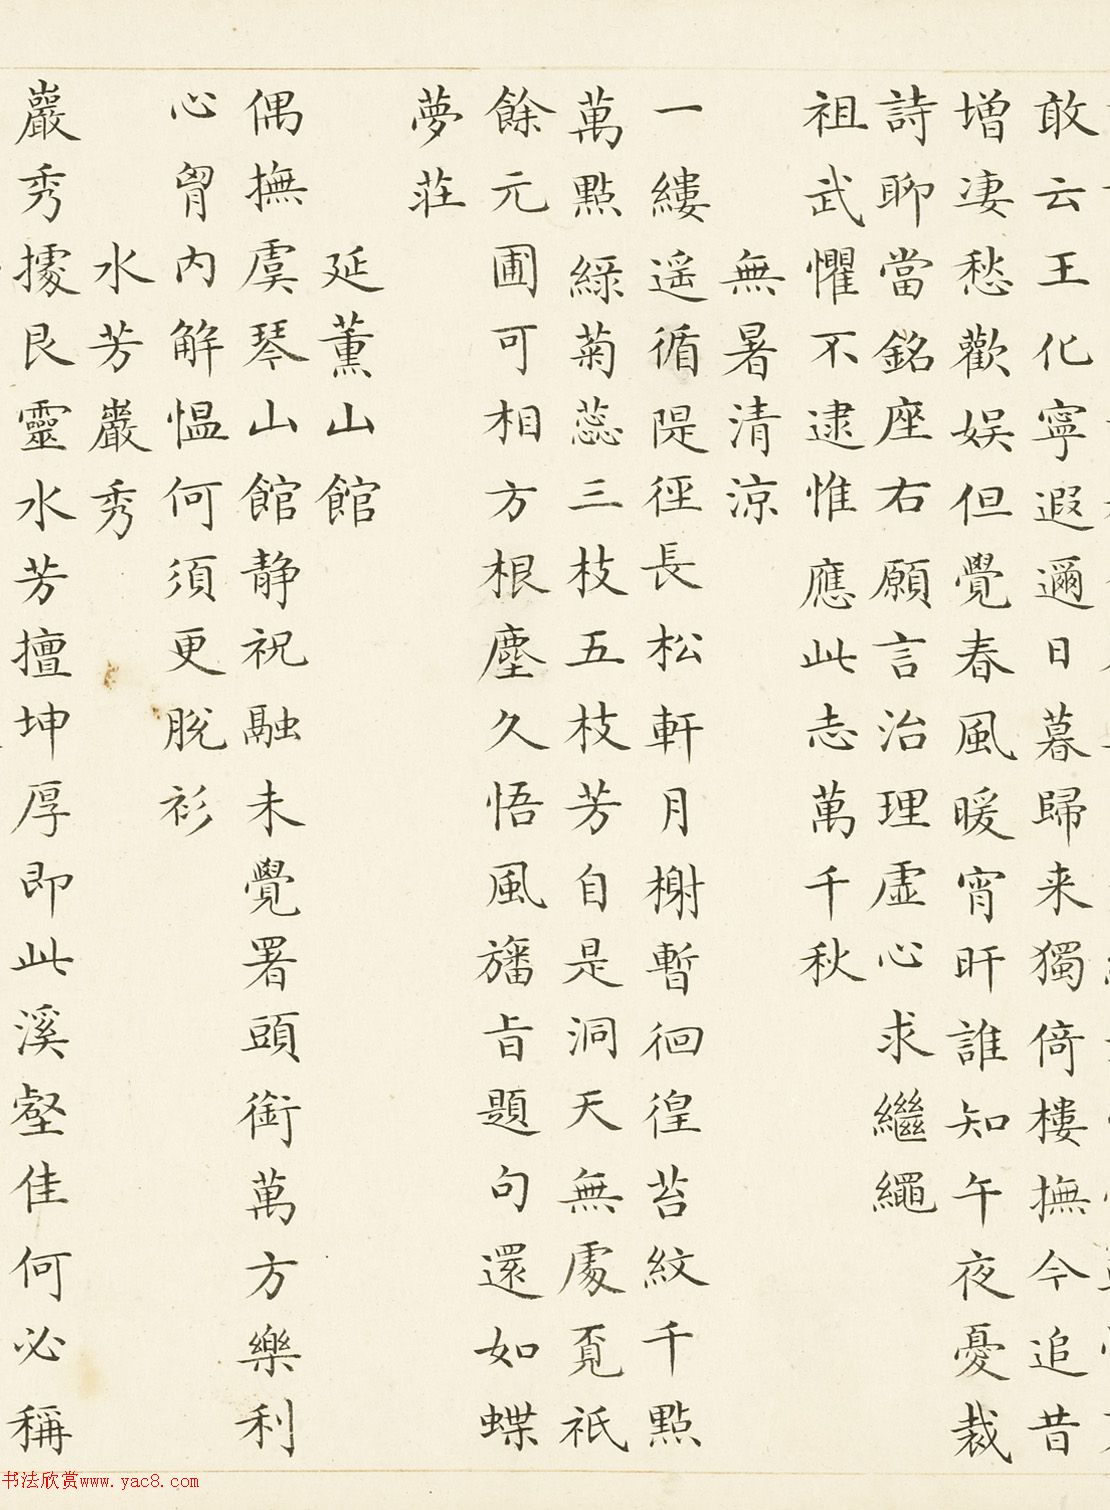 敢云王化寧遐邇日暮歸来獨倚樓撫今追昔
增凄愁歡娱但覺春風暖宵旰誰知午夜憂裁
詩聊當銘座右願言治理虚心求繼繩
祖武懼不逮惟應此志萬千秋
無暑清涼
一縷遥循隄徑長松軒月榭暫徊徨苔紋千點
萬點綠菊蕊三枝五枝芳自是洞天無處覔祇
餘元圃可相方根塵久悟風旛旨題句還如蝶
夢莊
延薰山館
偶撫虞琴山館静祝融未覺署頭銜萬方樂利
心胷内解愠何須更脱衫
水芳巖秀
巖秀據艮靈水芳擅坤厚即此溪壑佳何必稱
书法欣赏www.yac8.com